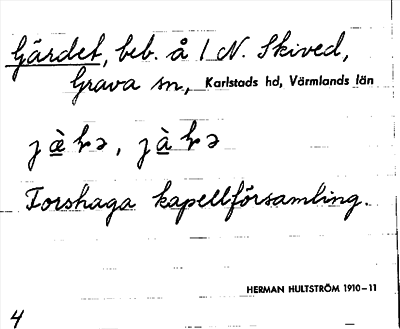 Gärdet, beb. å 1 N. Skived,
Grava sn, Karlstads hd, Värmlands län
Torshaga kapellförsamling.
HERMAN HULTSTRÖM 1910–11
4